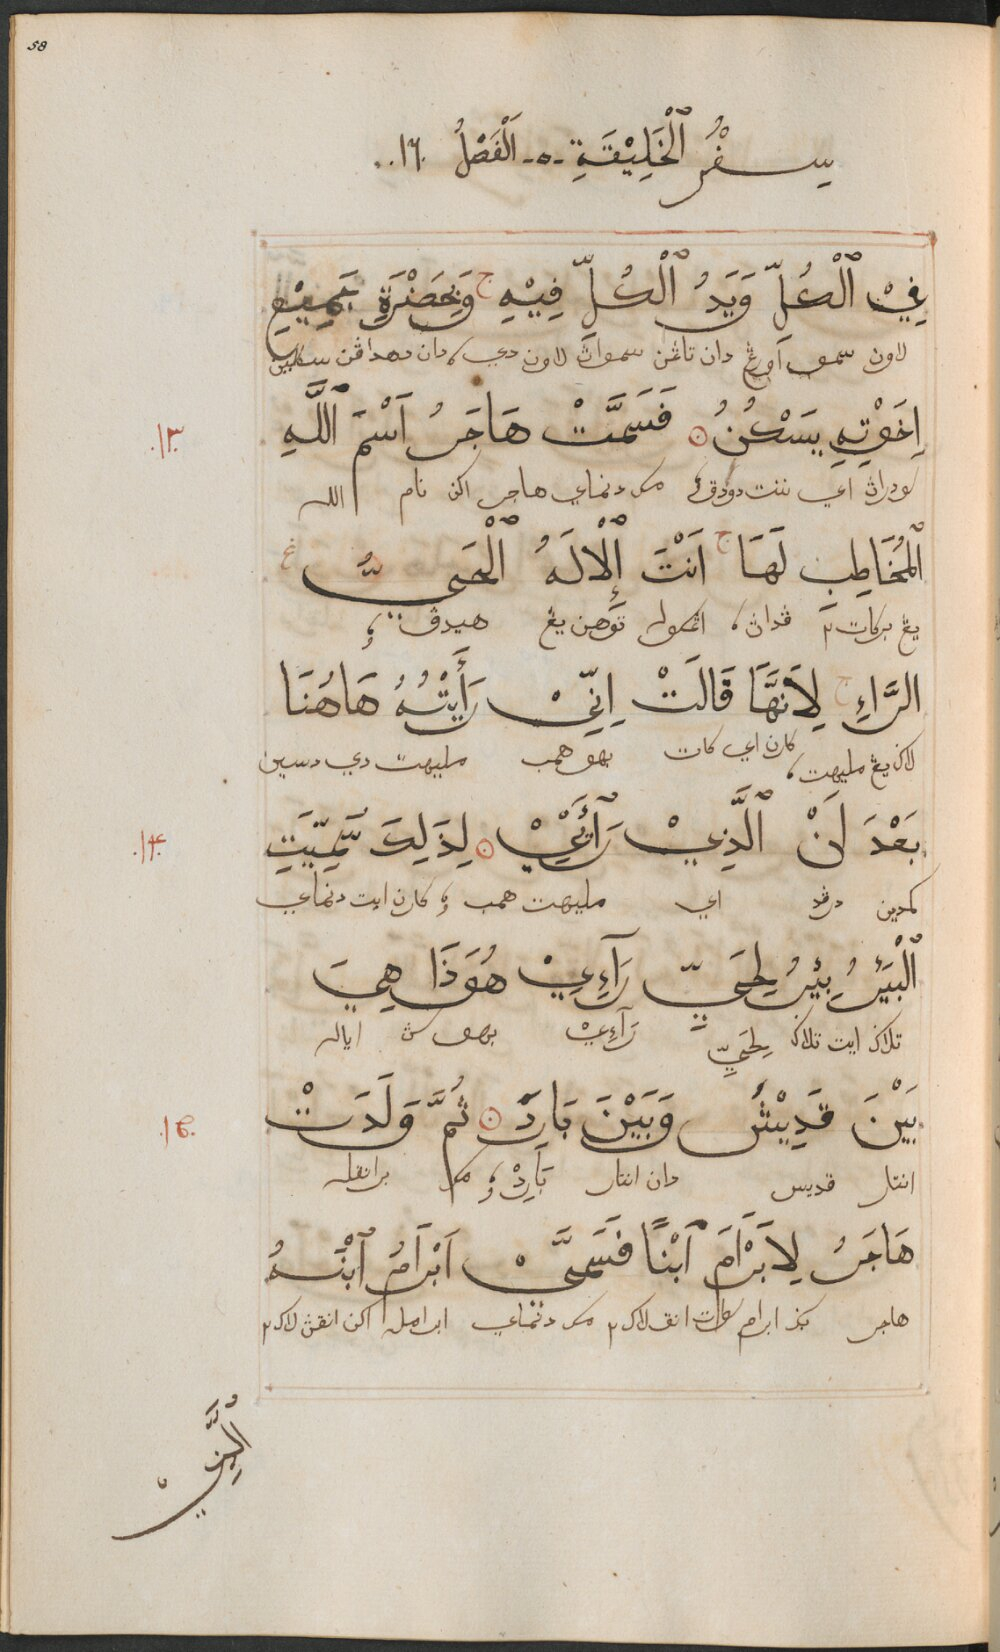 58
سِفْرُ ٱلْخَلِيْقَةِ -٥- اَلْفَصْلُ ١٦.
فِيْ ٱلْكُلِّ وَيَدُ ٱلْكُلِّ فِيْهِ ج وَبِحَضْرَةِ جَمِيْعِ
لاون سموا اورڠ دان تاڠن سموات لاون دي؛ دان دهداڤن سكلين
١٣. اِخْوَتِهِ يَسْكُنُ فَسَمَّتْ هَاجَرُ اَسْمَ ٱللّٰهِ
سودرات اي دودق؛ مك دنماي هاجر اكن نام الله
ٱلْمُخَاطِبِ لَهَا ج اَنْتَ ٱلْإِلَهُ ٱلْحَيُّ غ
يڠ بركات٢ ڤدات؛ اڠكوله توهن يڠ هيدوڤ؛
الرَّاءِ ج لِاَنَّهَا قَالَتْ اِنِّيْ رَأَيْتُهُ هَاهُنَا
لاݢ يڠ مليهت؛ كارن اي كات بهو همب مليهت دي دسين
١٤. بَعْدَ اَنْ ٱلَّذِيْ رَآنِيْ لِذَلِكَ سُمِّيَتِ
كمدين درڤد اي مليهت همب؛ كارن ايت دنماي
ٱلْبِئْرُ بِئْرُ لِحَيِّ رَآءِيْ هُوَذَا هِيَ
تلاݢ ايت تلاݢ لِحَيِّ رَآءِيْ بهوس اياله
١٥. بَيْنَ قَدِيْشَ وَبَيْنَ بَارِدَ ثُمَّ وَلَدَتْ
انتار قديس دان انتار بَارِدْ؛ مك برانقله
هَاجَرُ لِاَبْرَامَ ٱبْنًا فَسَمَّىْ اَبْرَامُ ٱبْنَهُ
هاجر بݢ ابرام انق لاك٢ مك دنماي ابرامله اكن انقڽ لاك٢
ٱلَّذِيْ